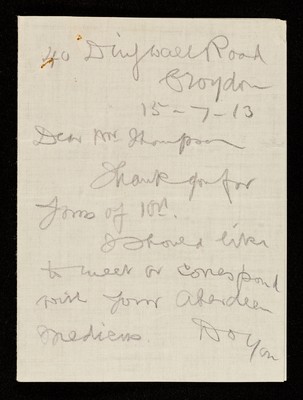 40 Dingwall Road
Croydon
15-7-13
Dear Mr Thompson
Thank you for
yours of 10th.
I should like
to meet or correspond
with your Aberdeen
medicos. Do you